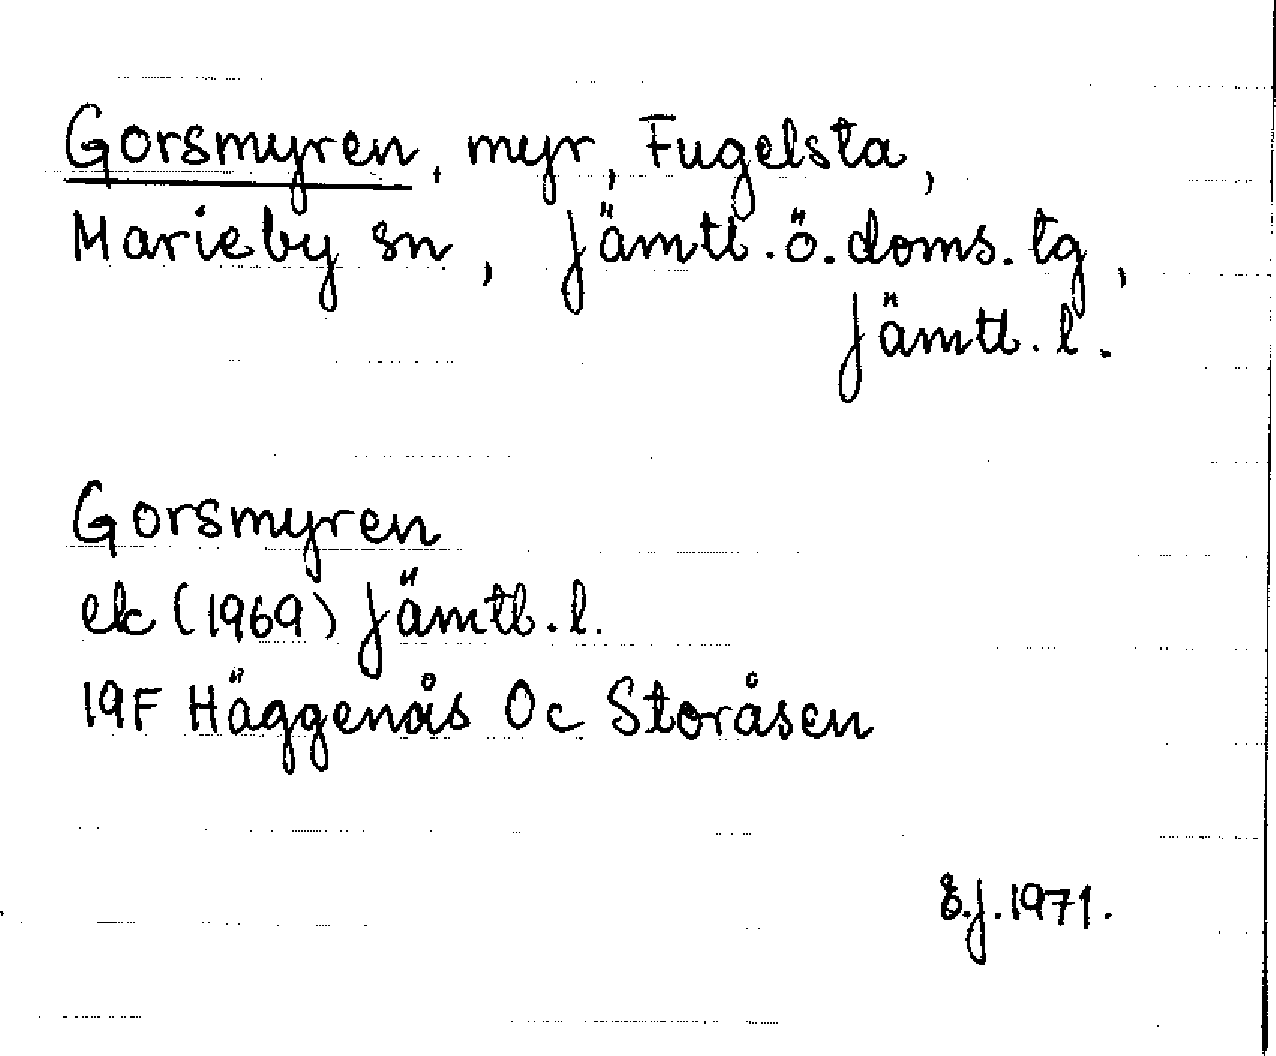 Gorsmyren, myr, Fugelsta,
Marieby sn, Jämtl. ö. doms. tg,
Jämtl. l.
Gorsmyren
ek (1969) Jämtl. l.
19F Häggenås Oc Storåsen
E.J. 1971.